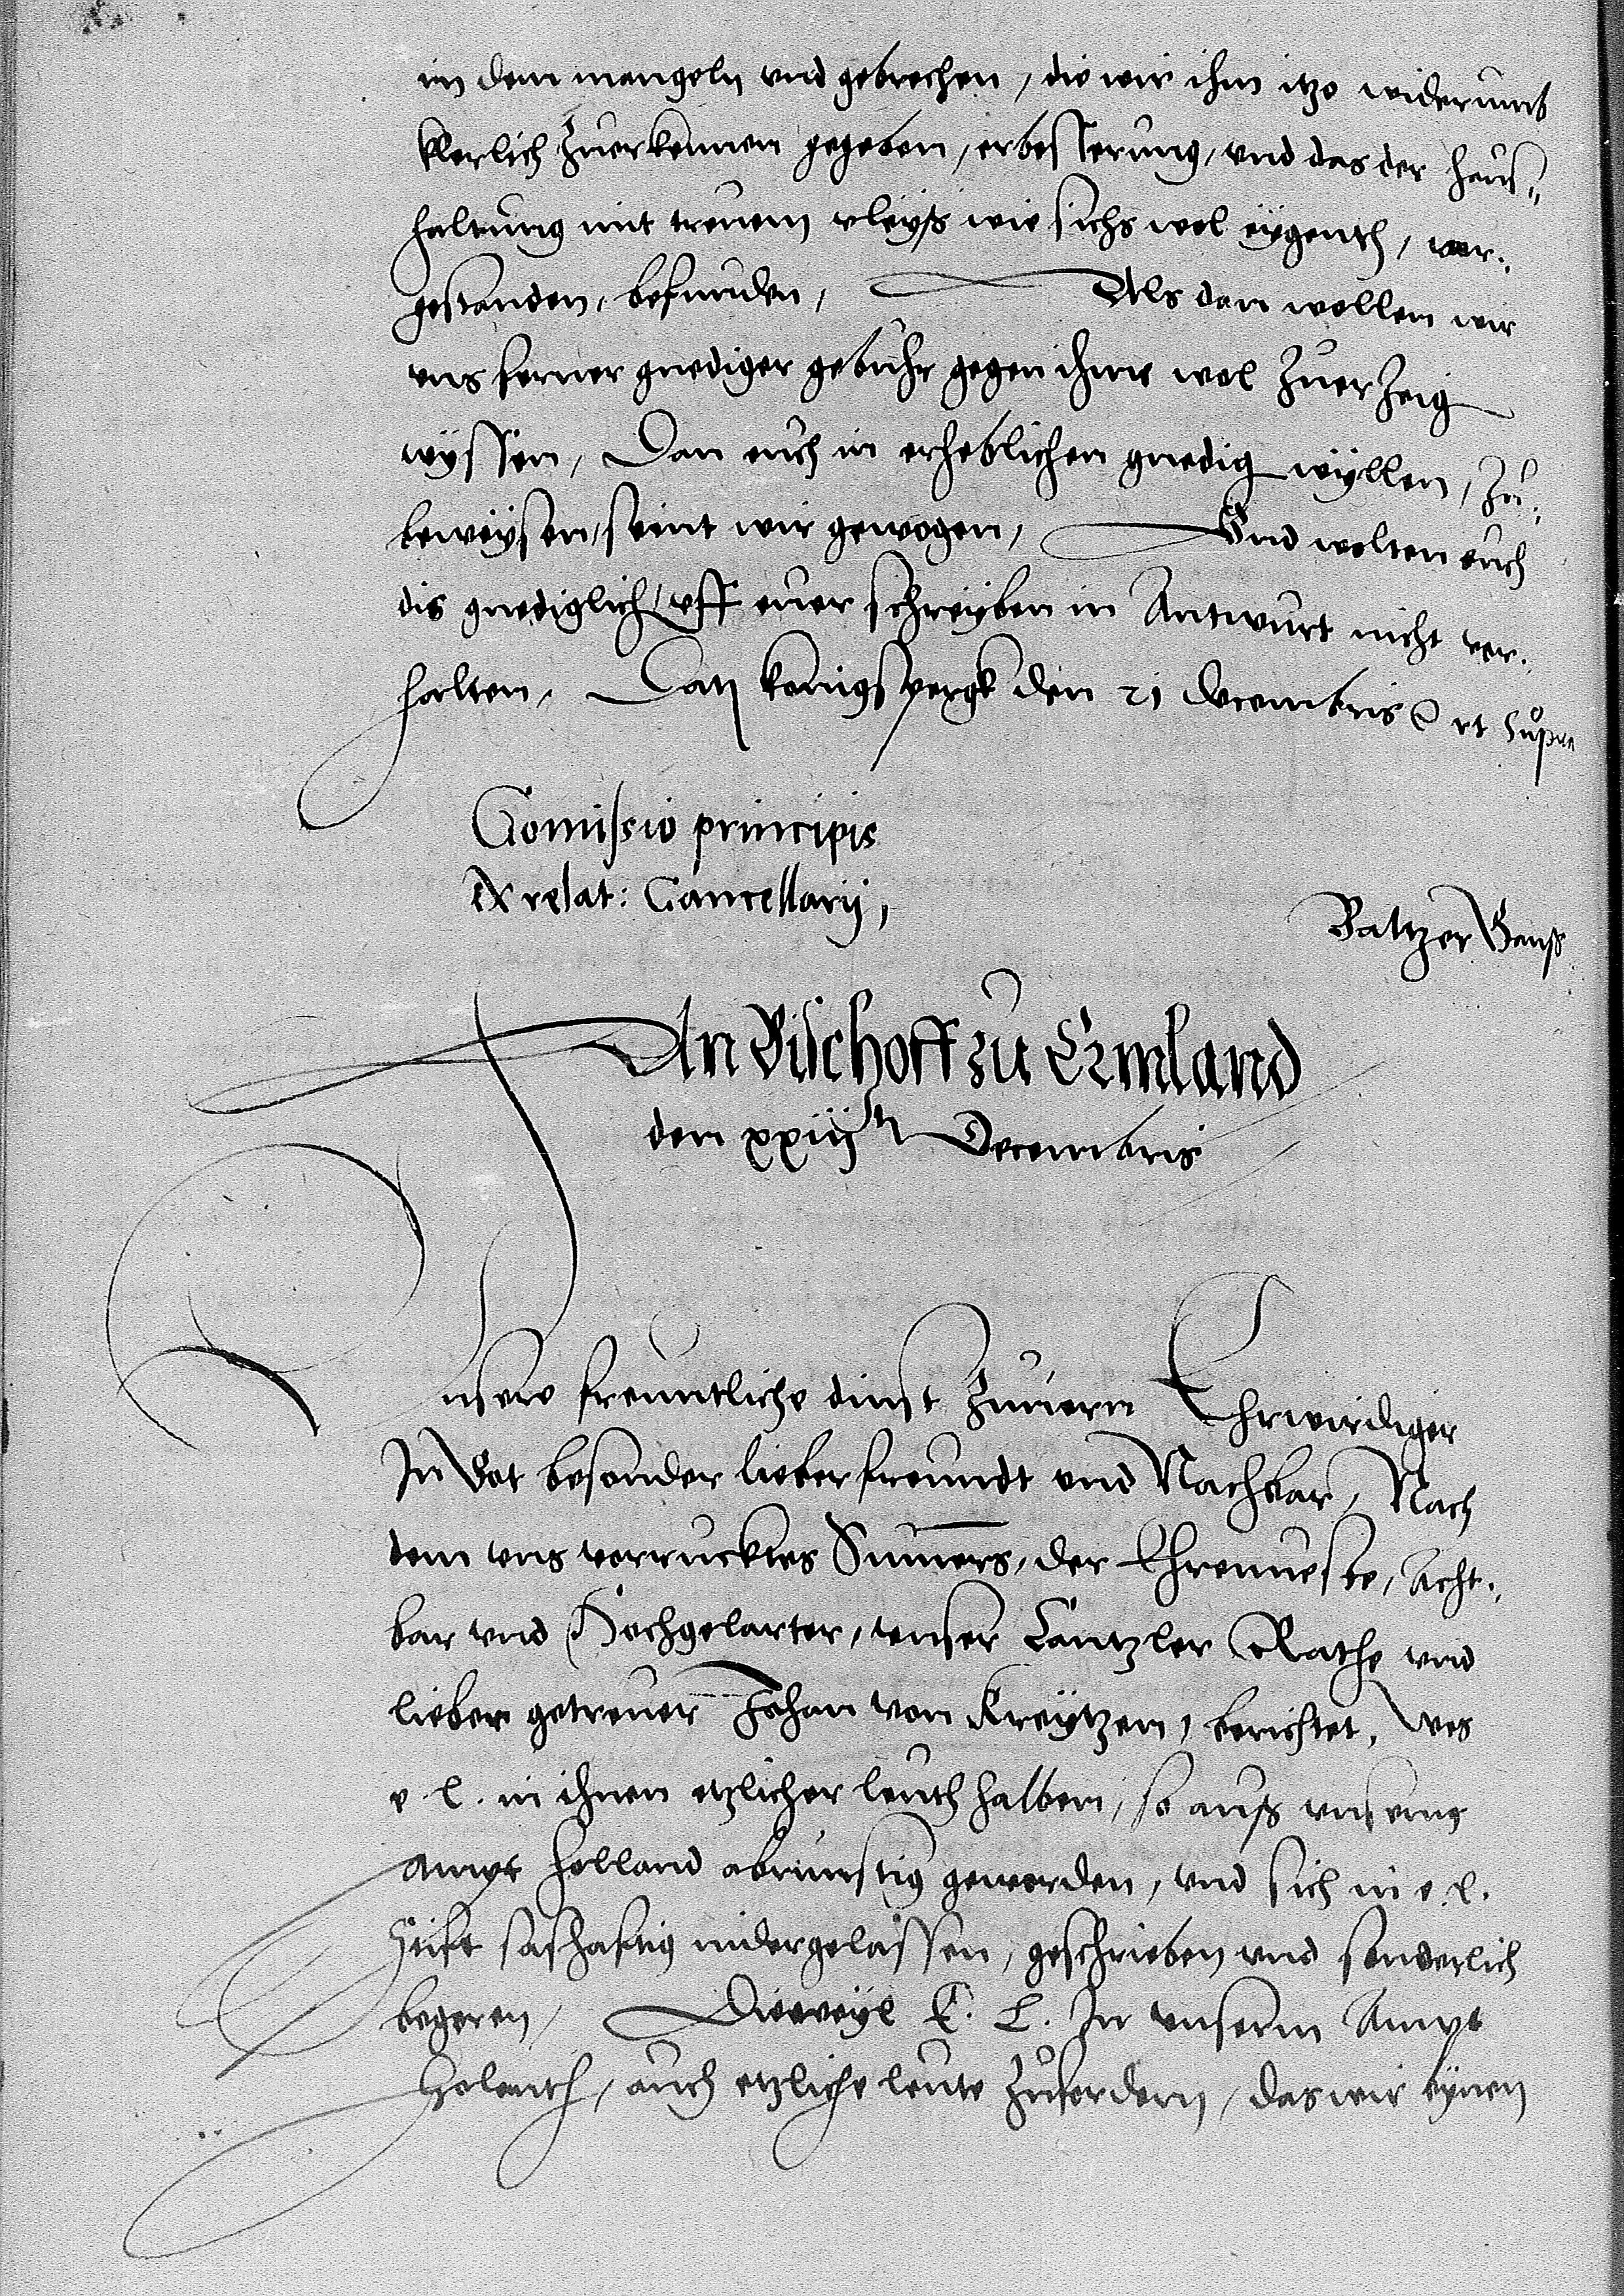 in dem mangeln vnd gebrechen, die wir ihm itzo widerumb
klerlich zuerkennen gegeben, erbesserung, vnd das der haus„
haltung mit treuem vleyß wie sichs wol eygenth, vor„
gestanden, befinden, Als dan wollen wir
vns ferner gnediger gebuhr gegen ihme wol zuerzeig
wyssen, Dan euch in erheblichen gnedig wyllen, zu„
beweysen, seint wir gewogen, Vnd wolten euch
dis gnediglich vff euer schreyben in Antwurt nicht ver„
halten, Datj konigspergk den 21 Decembris vt supra
Comissio principis
Ex relat: Cancellarij,
Baltzer Gans
An Bischoff zu Ermland
den xxiijtn Decembris
Vnsere freuntliche dinst zuuorn Ehrwirdiger
In Got besonder lieber freundt vnd Nachbar, Nach
dem vns vorrucktes Summers, der Ehrnueste, Acht„
bar vnd Hochgelarter, vnser Cantzler Rathe vnd
lieber getreuer Johan von Kreytzen, berichtet, Wes
e. l. in ihnen etzlicher leuth halben, so auß vnserm
Ampt Holland abrunstig geworden, vnd sich in e. l.
Stift sashafftig nidergelassen, geschrieben vnd sonderlich
begeren, Dieweyl E. L. In vnserm Ampt
Holanth, auch etzliche leute zufordern, das wir eynen